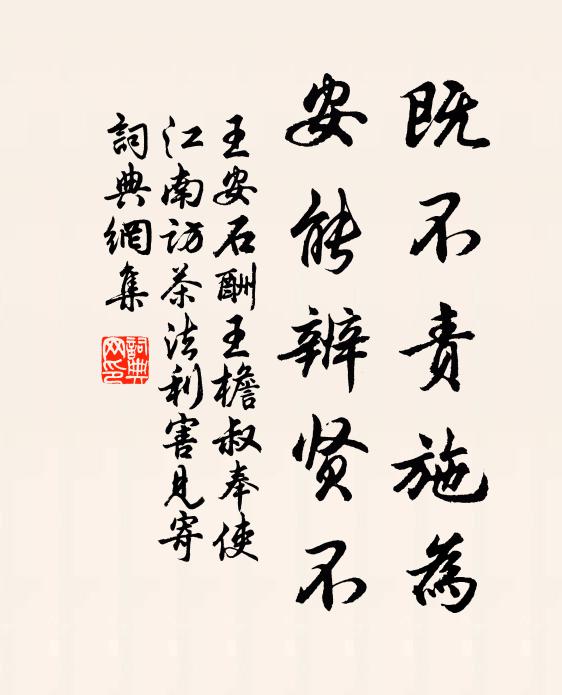 既不责施為
安能辨贤不
王安石酬王檐叔奉使
江南访茶法利害见寄
詞典網集
詞典
网印